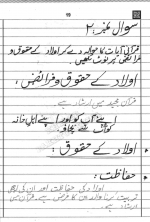 99
سوال نمبر: ۲
قرآنی آیات کا حوالہ دے کر اولاد کے حقوق و
فرائض پر نوٹ لکھیں۔
اولاد کے حقوق و فرائض:
قرآن مجید میں ارشاد ہے
اپنے آپ کو اور اپنے اہل خانہ
کو آگ سے بچاؤ۔
اولاد کے حقوق:
حفاظت:
اولاد کی حفاظت اور ان کی
تربیت کرنا والدین کا فرض ہے۔ قرآن میں